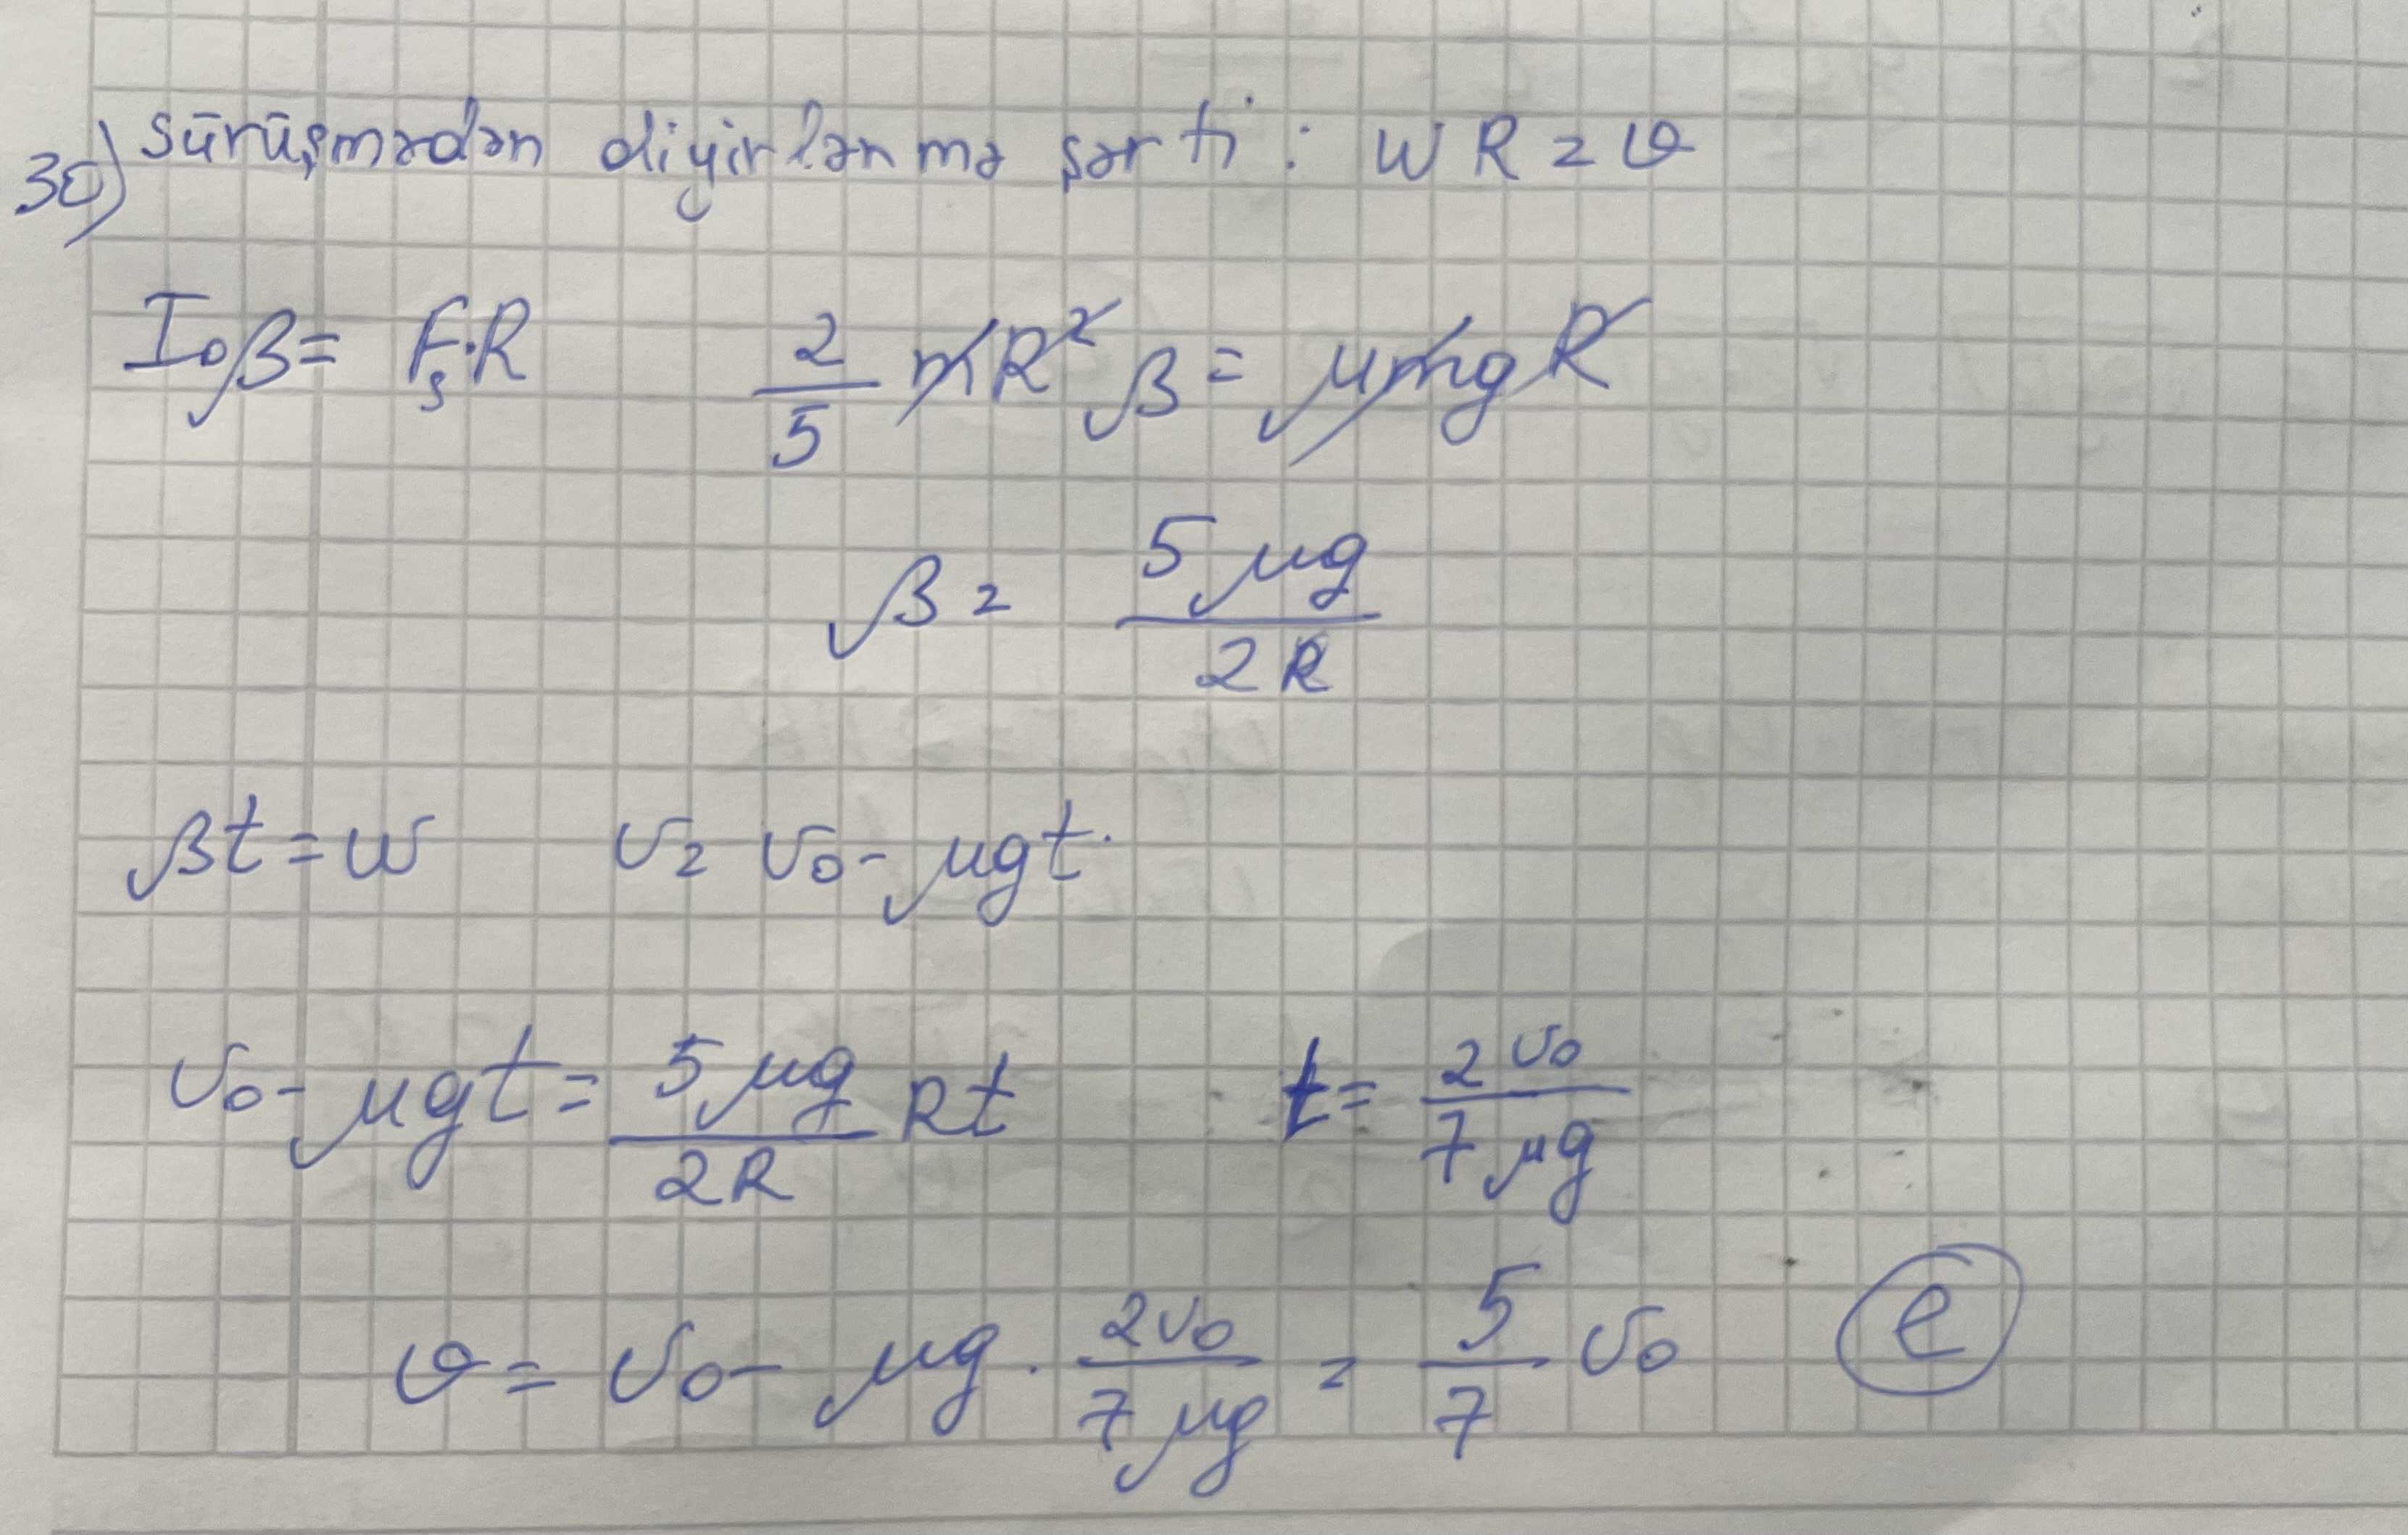 30) Sürüşmədən diyirlənmə şərti: ωR = υ
I₀β = Fₛ·R  2/5 mR²β = μmgR
β = 5μg/2R
βt = ω  υ = υ₀ - μgt.
υ₀ - μgt = 5μg/2R Rt  t = 2υ₀/7μg
υ = υ₀ - μg · 2υ₀/7μg = 5/7 υ₀  e